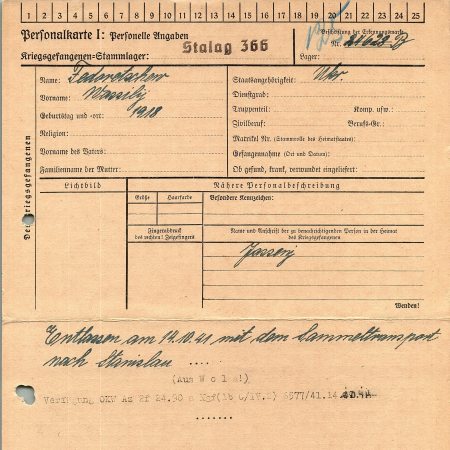 1 2 3 4 5 6 7 8 9 10 11 12 13 14 15 16 17 18 19 20 21 22 23 24 25
Personalkarte I: Personelle Angaben
Beschriftung der Erkennungsmarke
Kriegsgefangenen-Stammlager: Stalag 366
Nr.
Lager:
Des Kriegsgefangenen
Name:
Staatsangehörigkeit: Ukr.
Vorname: Wassilij
Dienstgrad:
Geburtstag und -ort: 1918
Truppenteil: Komp. usw.:
Religion:
Zivilberuf: Berufs-Gr.:
Matrikel Nr. (Stammrolle des Heimatstaates):
Vorname des Vaters:
Gefangennahme (Ort und Datum):
Familienname der Mutter:
Ob gesund, krank, verwundet eingeliefert:
Lichtbild
Nähere Personalbeschreibung
Größe Haarfarbe
Besondere Kennzeichen:
Fingerabdruck
des rechten! Zeigefingers
Name und Anschrift der zu benachrichtigenden Person in der Heimat
des Kriegsgefangenen
Wenden!
Entlassen am 14.10.41 mit dem Sammeltransport
nach Stanislau ....
Verfügung OKW Az 2f 24.30
.......